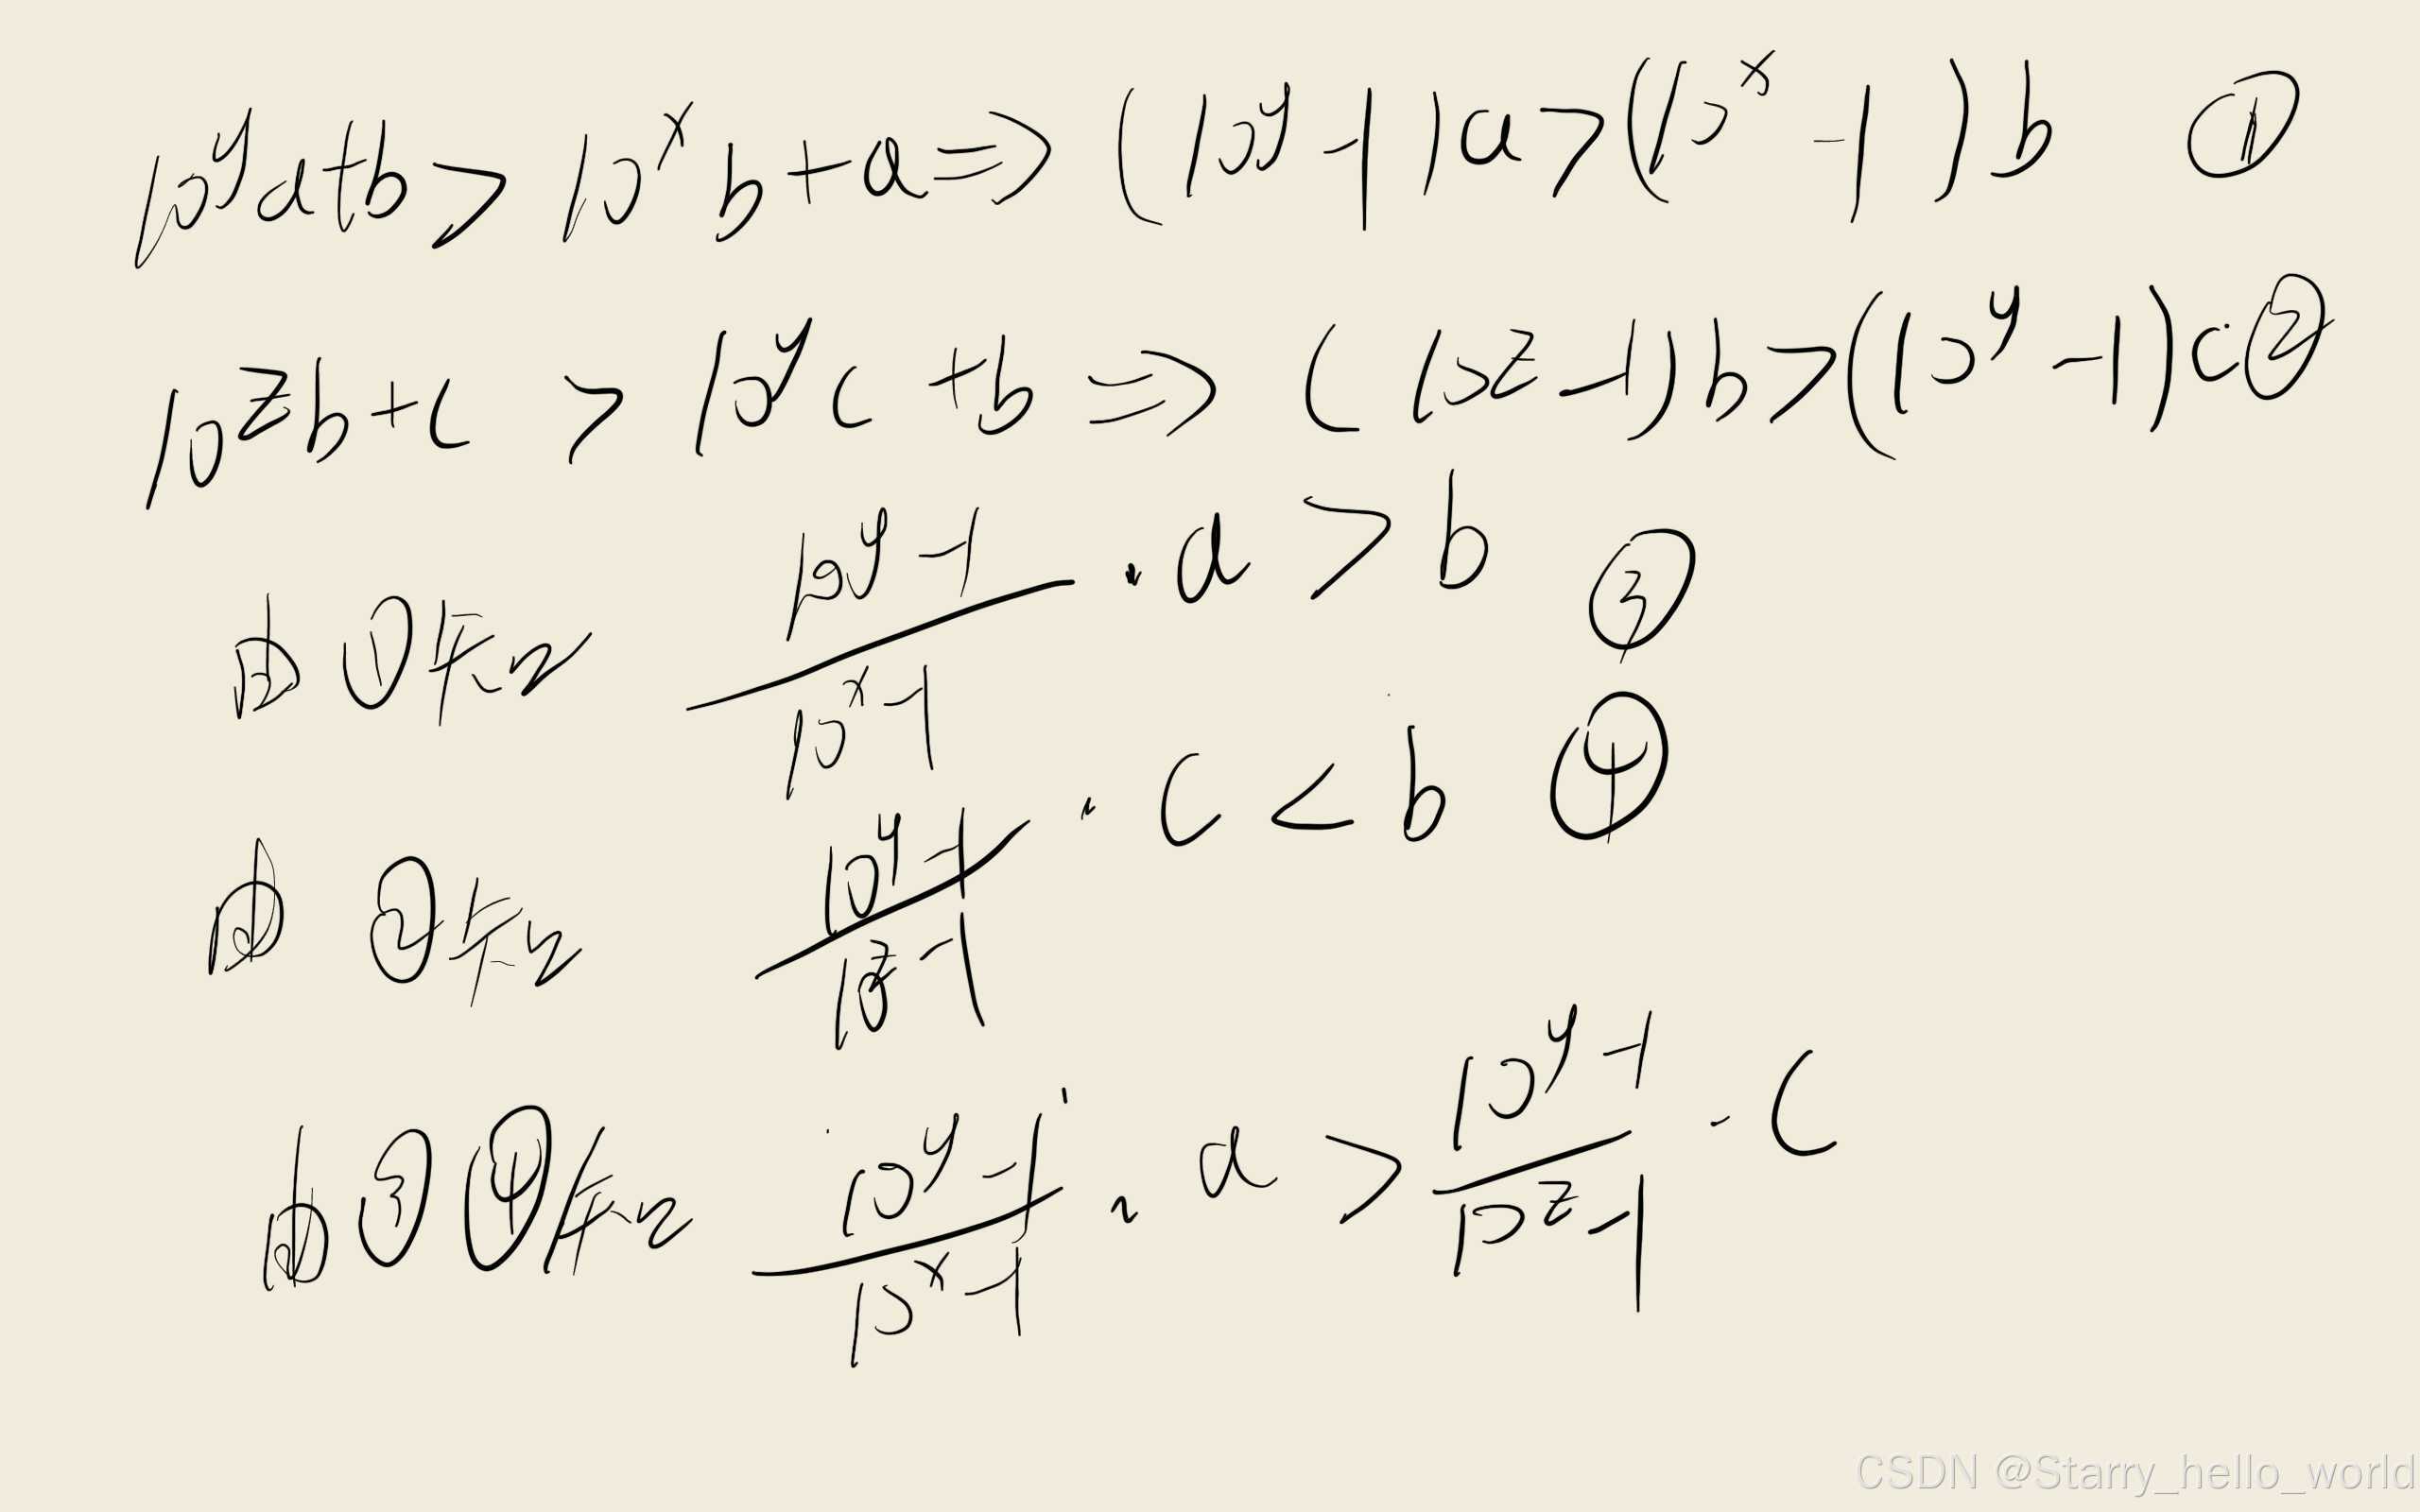 10^y a+b > 10^x b+a ⇒ (10^y -1)a > (10^x -1)b ①
10^z b+c > 10^y c+b ⇒ (10^z -1)b > (10^y -1)c ②
由①知 (10^y -1)/(10^x -1) · a > b ③
由②知 (10^y -1)/(10^z -1) · c < b ④
由③④知 (10^y -1)/(10^x -1) · a > (10^y -1)/(10^z -1) · c
CSDN @Starry_hello_world